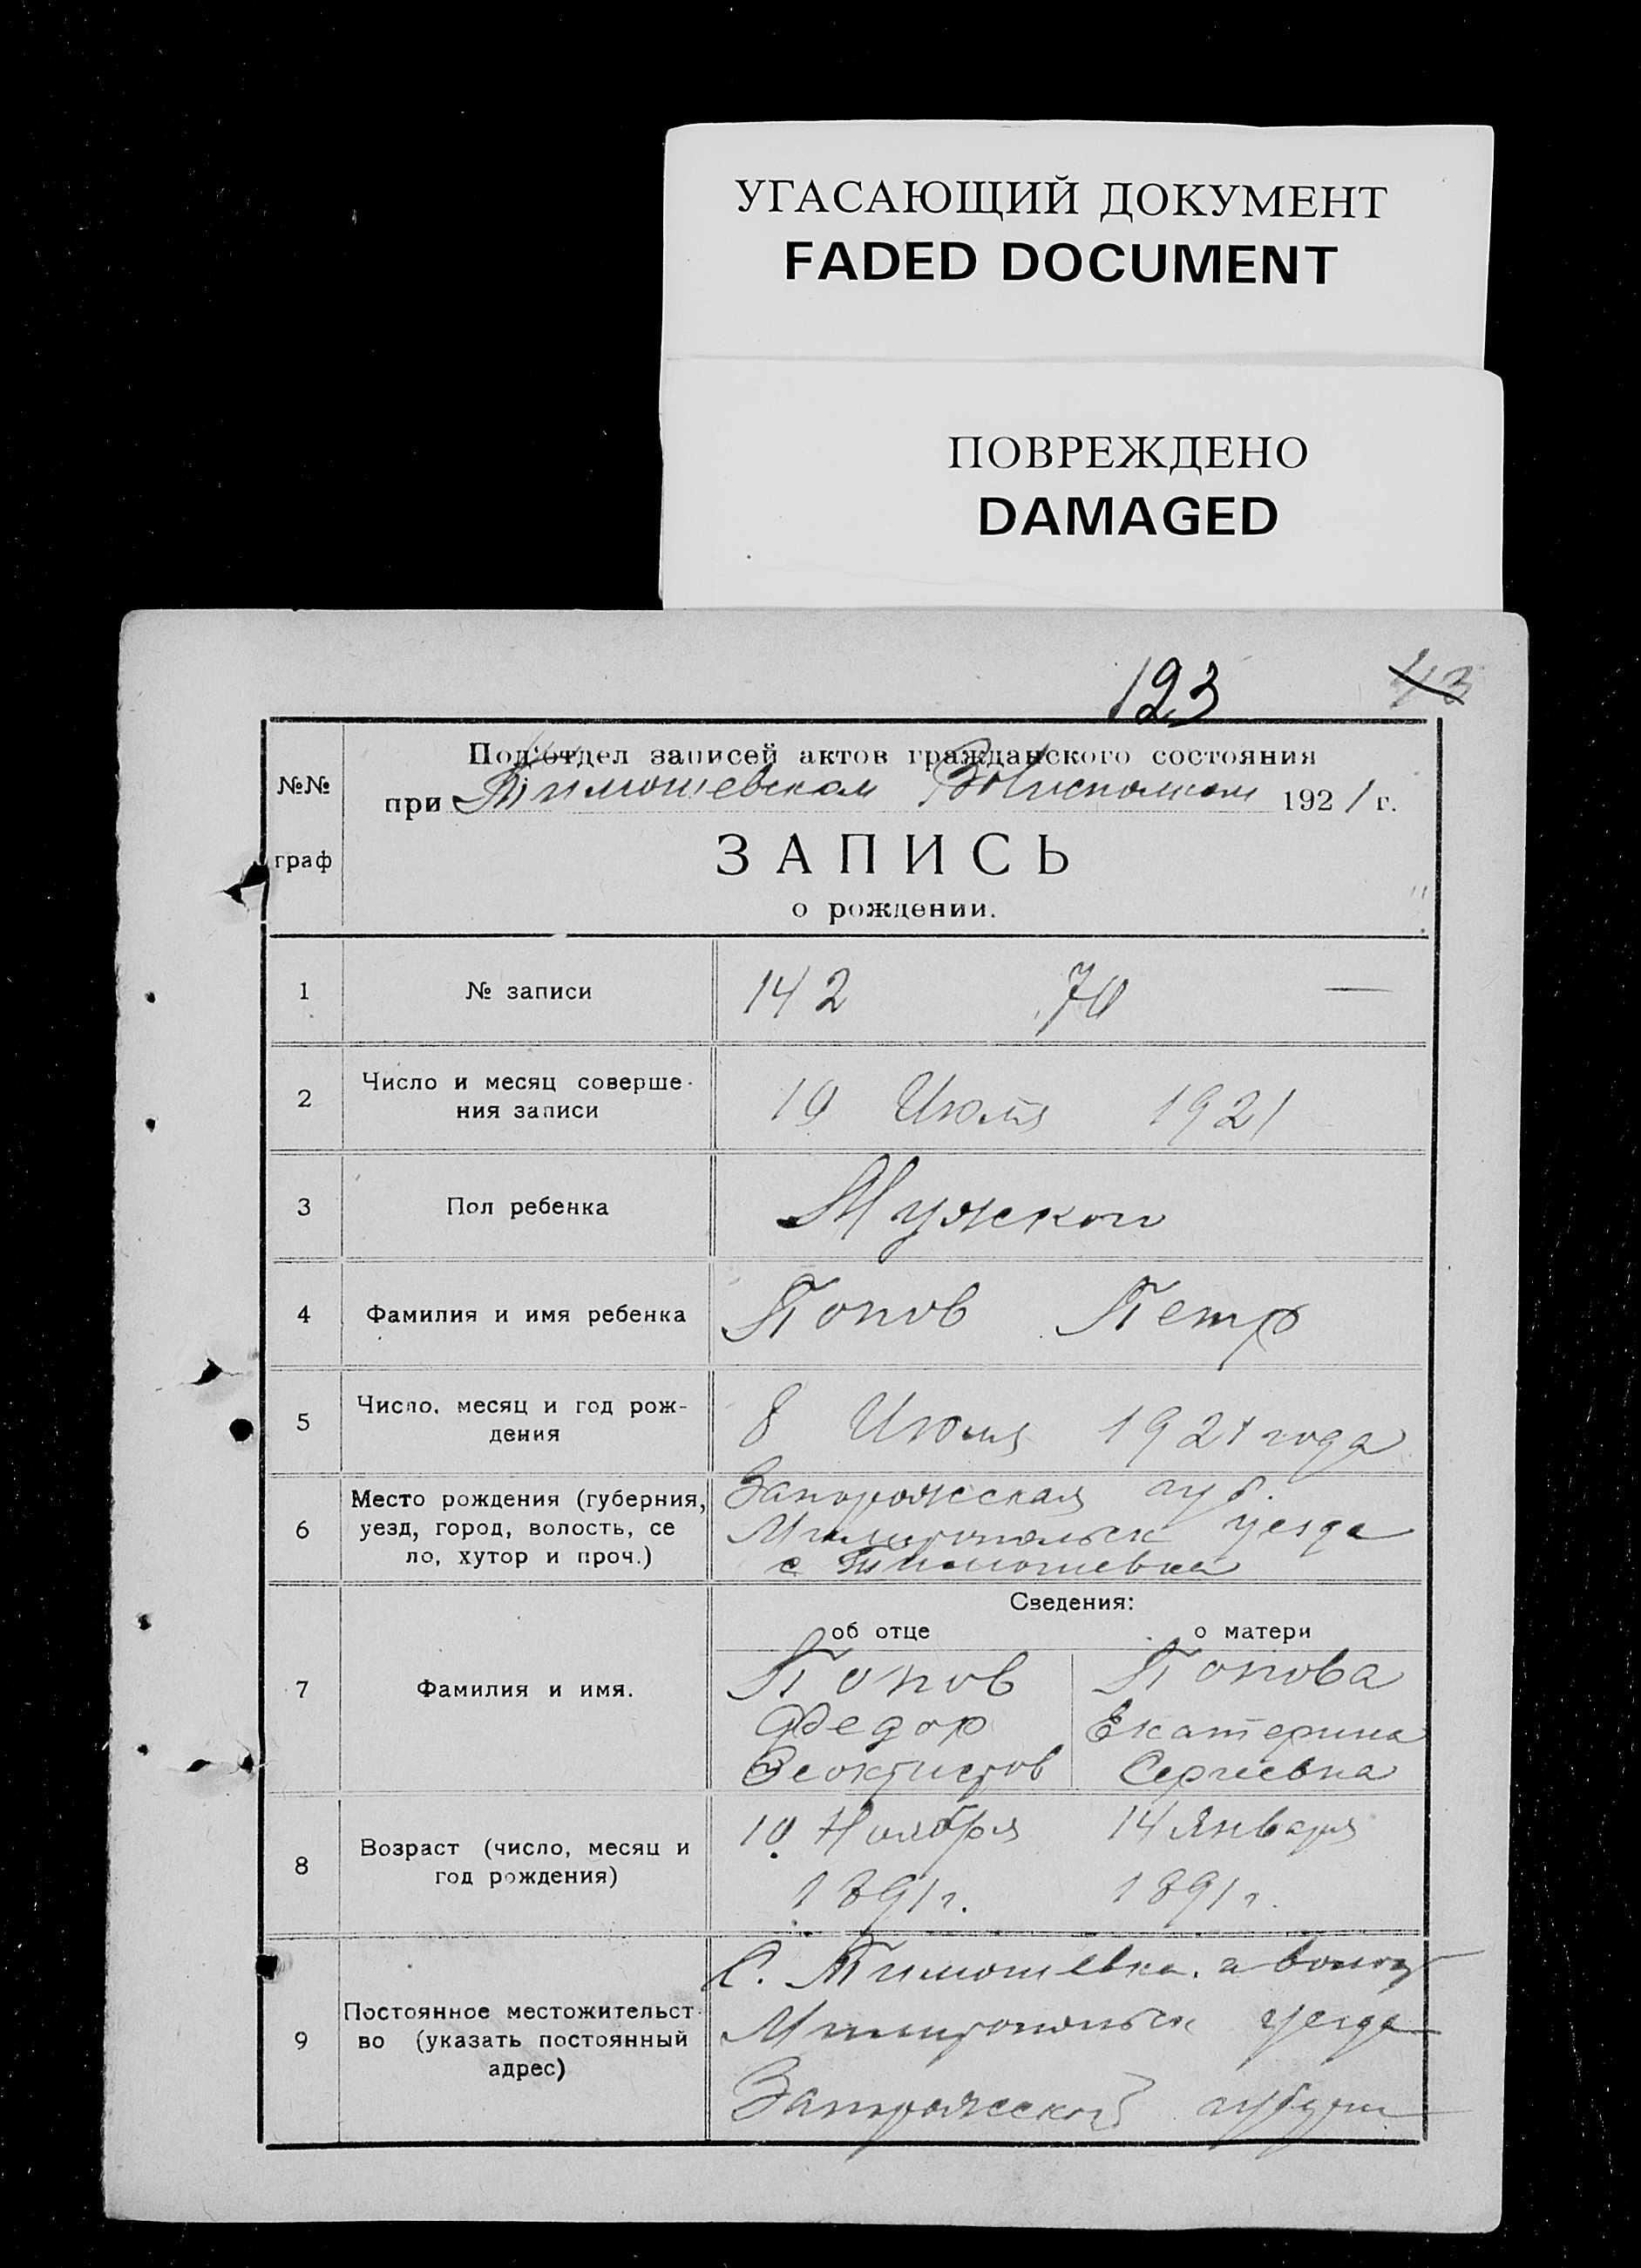 УГАСАЮЩИЙ ДОКУМЕНТ
FADED DOCUMENT
ПОВРЕЖДЕНО
DAMAGED
123 43
№№ граф
Под'отдел записей актов гражданского состояния
при Тимошевском Волисполком 1921 г.
ЗАПИСЬ
о рождении.
1 № записи 142 70 —
2 Число и месяц соверше-
ния записи
10 Июля 1921
3 Пол ребенка Мужской
4 Фамилия и имя ребенка Попов Петр
5 Число, месяц и год рож-
дения
8 Июля 1921 года
6 Место рождения (губерния,
уезд, город, волость, се
ло, хутор и проч.)
Запорожская губ.
Мелитопольск уезда
с Тимошевка
Сведения:
об отце о матери
7 Фамилия и имя.
Попов
Федор
Феоктистов
Попова
Екатерина
Сергеевна
8 Возраст (число, месяц и
год рождения)
10 Ноября
1891 г.
14 Января
1891 г.
9 Постоянное местожительст-
во (указать постоянный
адрес)
С. Тимошевка
Мелитопольск уезда
Запорожской